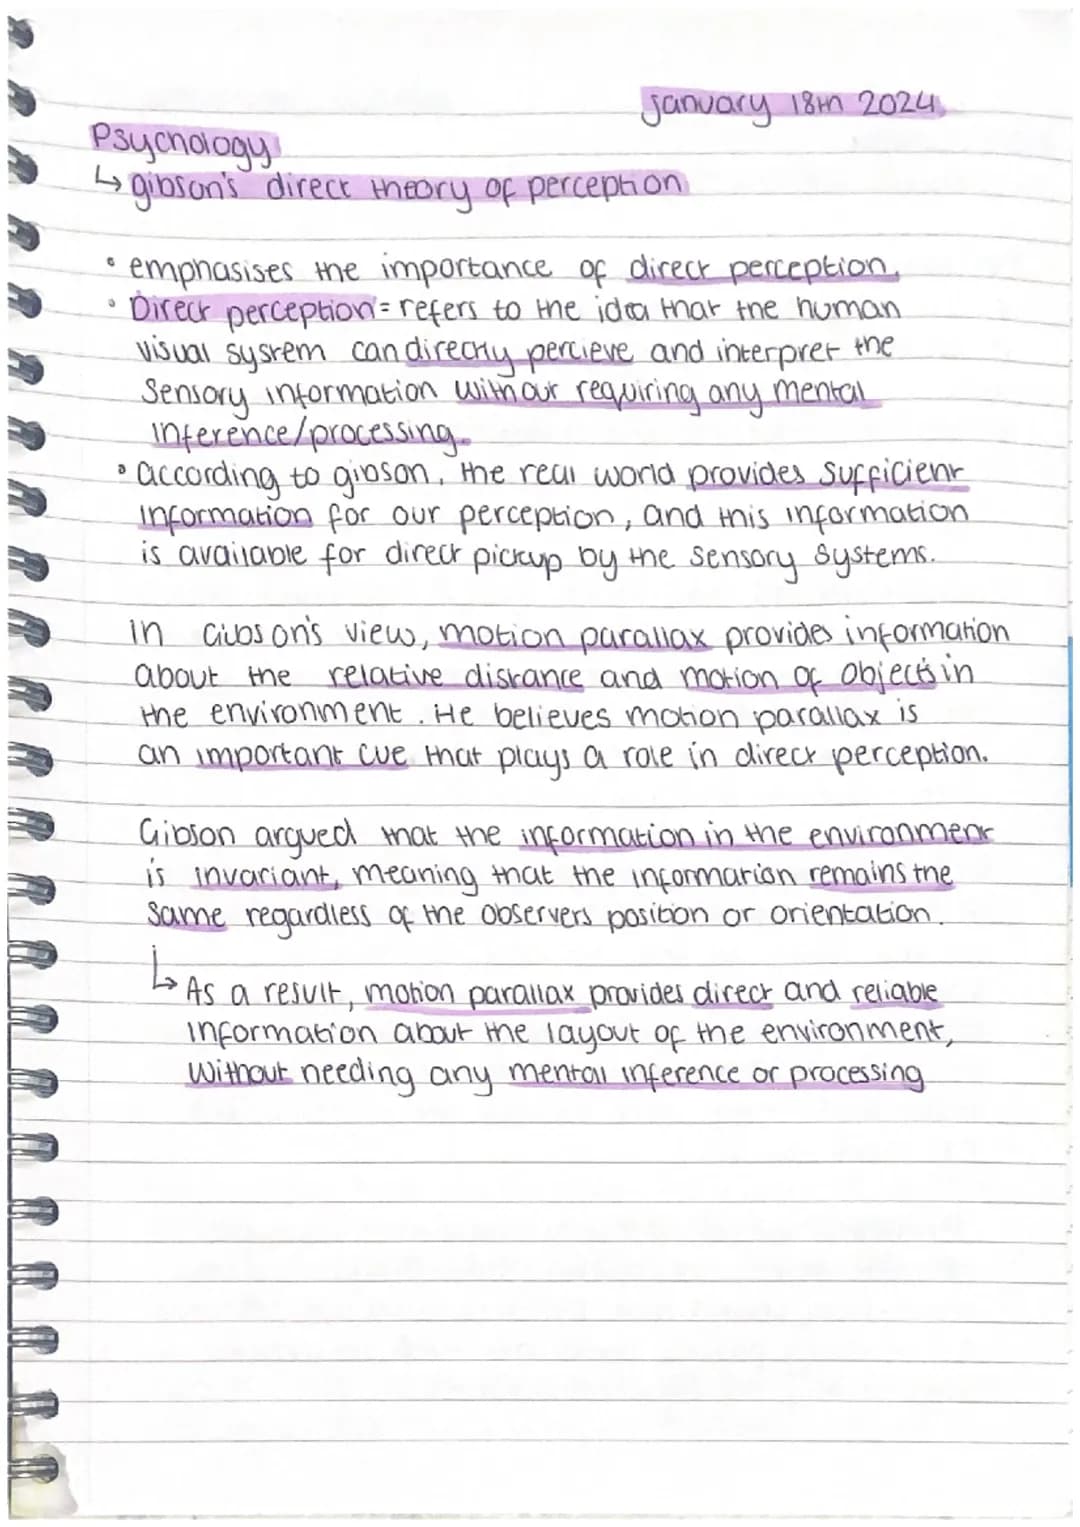 january 18th 2024
Psychology
↳ gibson's direct theory of perception
• emphasises the importance of direct perception.
• Direct perception = refers to the idea that the human
visual system can directly percieve and interpret the
sensory information without requiring any mental
inference/processing.
• according to gibson, the real world provides sufficient
information for our perception, and this information
is available for direct pickup by the sensory systems.
in Gibson's view, motion parallax provides information
about the relative distance and motion of objects in
the environment. He believes motion parallax is
an important cue that plays a role in direct perception.
Gibson argued that the information in the environment
is invariant, meaning that the information remains the
same regardless of the observers position or orientation.
↳ As a result, motion parallax provides direct and reliable
information about the layout of the environment,
without needing any mental inference or processing